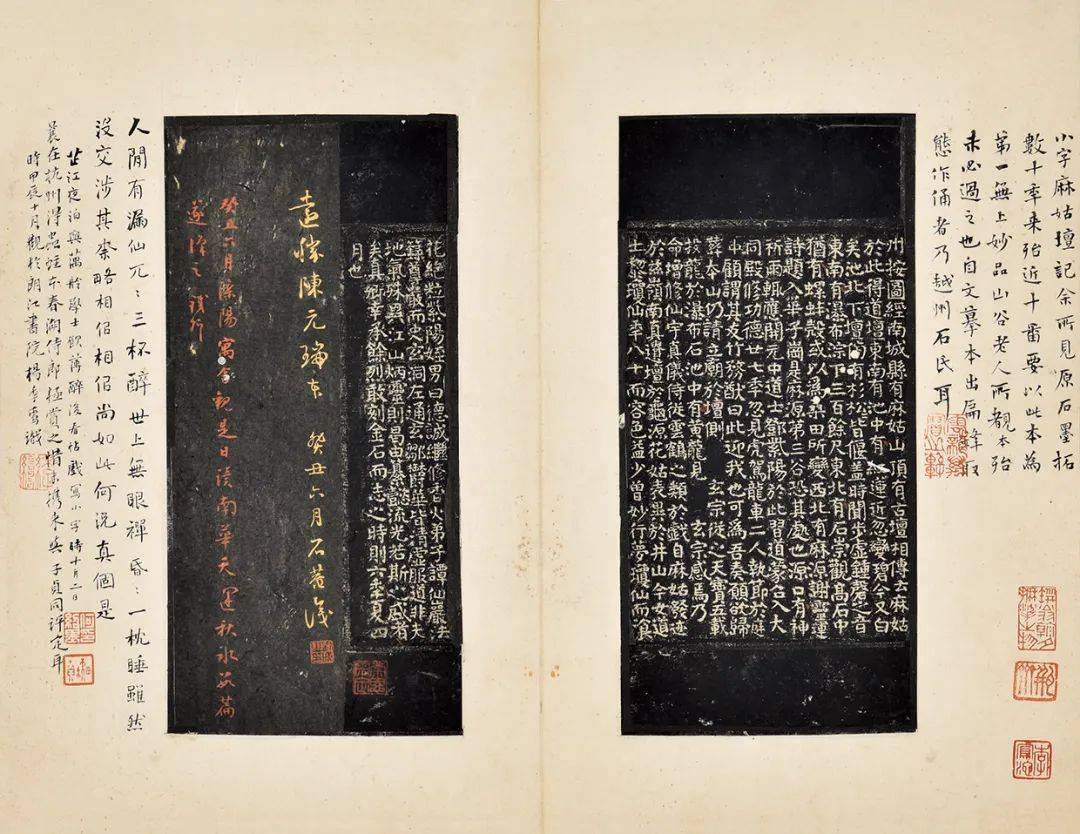 小字麻姑壇記余所見原石墨拓
數十年来殆近十番要以此本為
第一無上妙品山谷老人所觀本殆
未必過之也自文摹本出扁鋒取
態作俑者乃越州石氏耳
州按圖經南城縣有麻姑山頂有古壇相傳云麻姑
於此得道壇東南有池中有紅蓮近忽變碧今又白
矣池北下壇傍有杉松皆偃盖時聞步虛鍾磬之音
東南有瀑布淙下三百餘尺東北有石崇觀高石中
猶有螺蚌殼或以為桑田所變西北有麻源謝靈運
詩題入華子崗是麻源第三谷恐其處也源口有神
祈雨輒應開元中道士鄧紫陽於此習道蒙召入大
同殿修功德廿七年忽見虎駕龍車二人執節於庭
中顧謂其友竹務猷曰此迎我也可為吾奏願欲歸
葬本山仍請立廟於壇側 玄宗從之天寶五載
投龍於瀑布石池中有黃龍見 玄宗感焉乃
命增修仙宇真儀侍從雲鶴之類於戲自麻姑發迹
於茲嶺南真遺壇於龜源花姑表異於井山今女道
士黎瓊仙年八十而容色益少曾妙行夢瓊仙而飡
花絕粒紫陽姪男曰德誠繼修香火弟子譚仙巖法
籙尊嚴而史玄洞左通玄鄒鬱華皆清虛服道非夫
地氣殊異江山炳靈則曷由纂懿流光若斯之盛者
矣真卿幸承餘烈敢刻金石而志之時則六年夏四
月也
遠勝陳元瑞本 癸丑六月石菴識
癸丑六月際陽寓舍觀是日讀南華天運秋水數篇
人閒有漏仙兀:三杯醉世上無眼禪昏:一枕睡雖然
沒交涉其柰略相似相似尚如此何況真個是
芷江夜泊與蕅舲學士飲薄醉後看帖戲寫小字時十月二日
曩在杭州得蟲蛀本春湖侍郎極賞之惜未携来與子貞同評定耳
時甲辰十月觀於朗江書院楊季鸞識